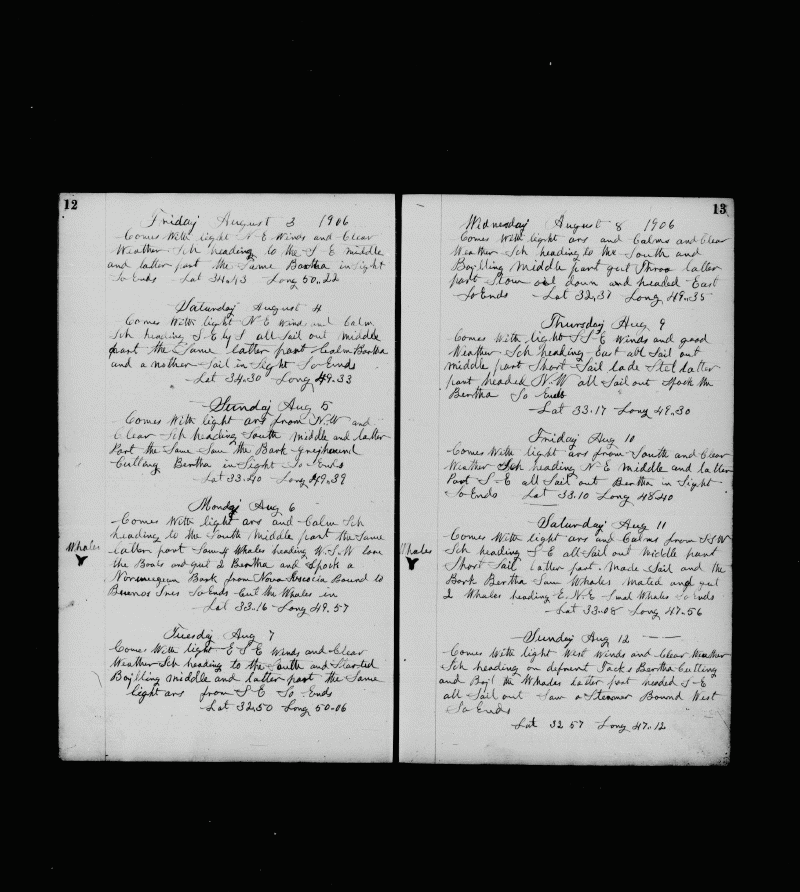 12
Friday August 3 1906
Comes With light N-E Winds and Clear
Weather Sch heading to the S E middle
and latter part the Same Bertha in Sight
So Ends Lat 34.43 Long 50.22
Saturday August 4
Comes With light N-E Winds and Calm
Sch heading S-E by S all Sail out middle
part the Same latter part Calm Bertha
and a nother Sail in Sight So Ends
Lat 34.30 Long 49.33
Sunday Aug 5
Comes With light ars from N.W and
Clear Sch heading South middle and latter
Part the Same Saw the Bark greyhound
Cutting Bertha in Sight So Ends
Lat 33.40 Long 49.39
Monday Aug 6
Comes With light ars and Calm Sch
heading to the South Middle part the Same
Whales
latter part Saw Whales heading W.S.W
the Boats and gut 2 Bertha and Spock a
Norwegian Bark from Nova Bound to
Buenos Ires So Ends Cut the Whales in
Lat 33.16 Long 49.57
Tuesday Aug 7
Comes With light E S E Winds and Clear
Weather Sch heading to the South and Started
Boylling middle and latter part the Same
light ars from S-E So Ends
Lat 32.50 Long 50.06
13
Widnesday August 8 1906
Comes With light ars and Calms and Clear
Weather Sch heading to the South and
Boylling Middle part gut Throo latter
part Stow oil down and headed East
So Ends Lat 32.37 Long 49.35
Thursday Aug 9
Comes With light S-E Winds and good
Weather Sch heading East all Sail out
middle part Short Sail lade Stel latter
part headed N.W all Sail out Spock the
Bertha So Ends
Lat 33.17 Long 49.30
Friday Aug 10
Comes With light ars from South and Clear
Weather Sch heading N E middle and latter
Part S-E all Sail out Bertha in Sight
So Ends Lat 33.10 Long 48.40
Saturday Aug 11
Comes With light ars and Calms from SSW
Whales
Sch heading S E all Sail out middle part
Short Sail latter part Made Sail and the
Bark Bertha Saw Whales Mated and gut
2 Whales heading E.N-E Smal Whales So Ends
Lat 33.08 Long 47.56
Sunday Aug 12
Comes With light West Winds and Clear Weather
Sch heading on defrent Tacks Bertha Cutting
and Boyl the Whales latter part headed S-E
all Sail out Saw a Steamer Bound West
So Ends
Lat 32 57 Long 47.12